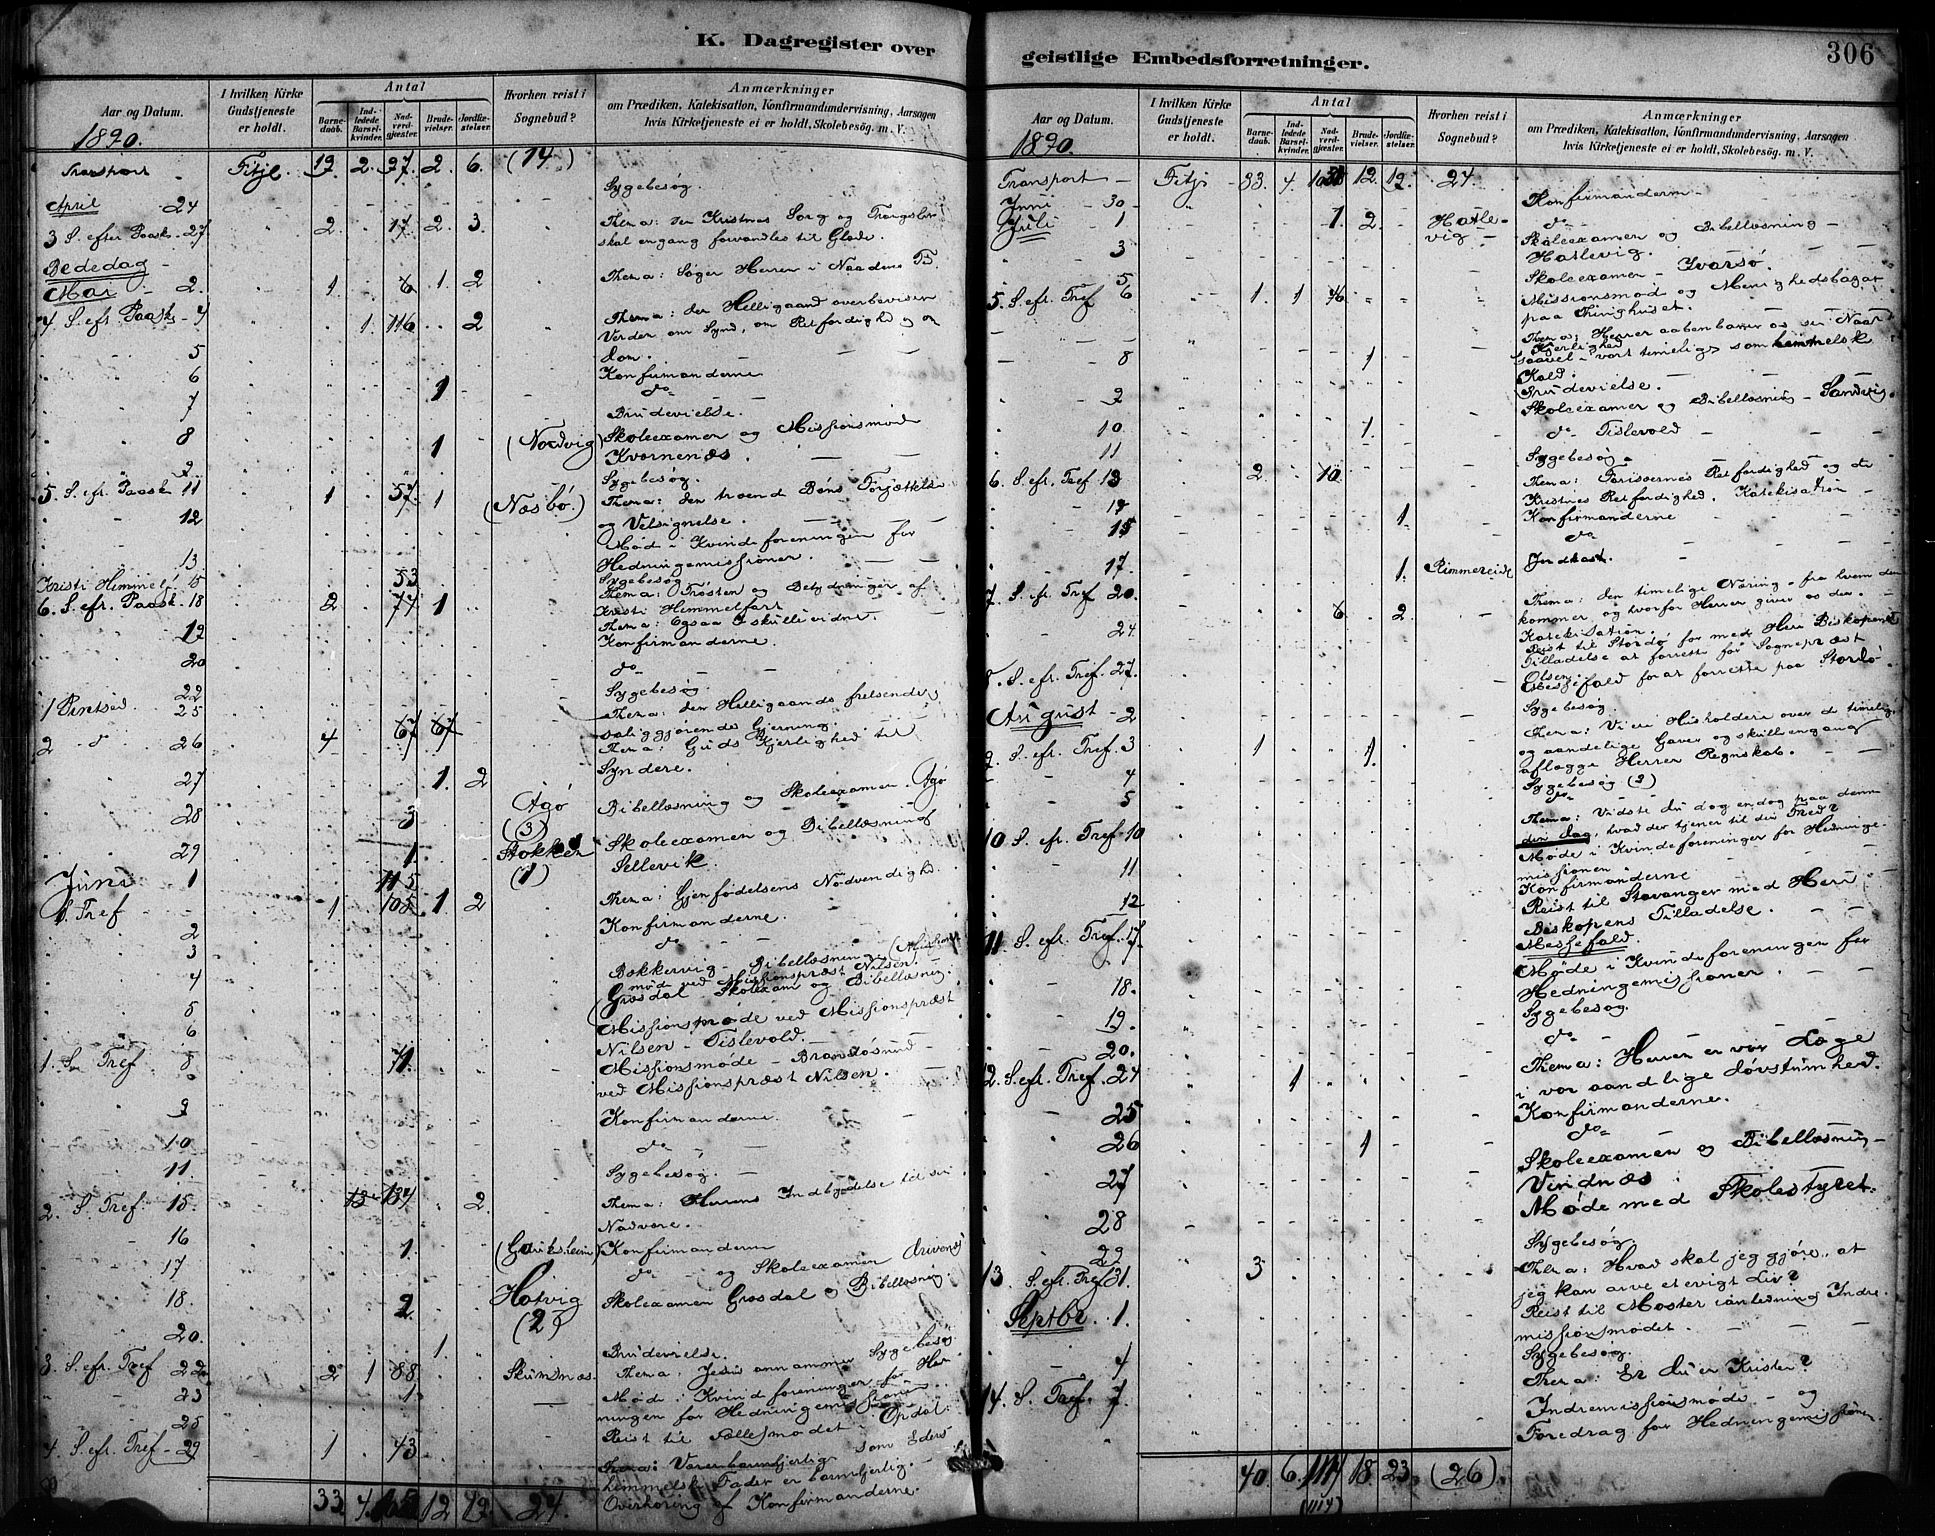 K. Dagregister over
Aar og Datum.
I hvilken Kirke Gudstjeneste er holdt.
Antal
Barnedaab.
Indledede Barselkvinder.
Nadverdgjæster.
Brudevielser.
Jordfæstelser.
Hvorhen reist i Sognebud?
Anmærkninger
om Prædiken, Katekisation, Konfirmandundervisning, Aarsagen
hvis Kirketjeneste ei er holdt, Skolebesøg. m. V.
1890.
Transport Fitje. 2. 2. 6. (14)
April - 24 Sygebesøg.
3 S. efter Paask - 27 2 17 2. 3. Thema: den Kristnes Sorg og
skal engang forvandles til Glæde.
Bededag
Mai - 2. 1 6 1 2 Thema: Søger Herren i Naadens
4 S. efr. Paask - 4 1. 116 2 Thema: der Helligaand overbeviser
Verden om Synd, om Retfærdighed og
dom.
5 Konfirmanderne
6 1 do
7 Brudevielse.
8 1 (Nordvig) Skoleexamen og Missionsmøde
Kvernenæs.
9 Sygebesøg.
5. S. efr. Paask 11 1 57. 1 (Næsbø.) Thema: den troende Bøns Forjættelse
og Velsignelse.
12 Møde i Kvindeforeningen for
Hedningemissionen.
13 Sygebesøg
Kristi Himmelf 15 53 Thema: Trøsten og Betydningen af
Kristi Himmelfart
6. S. efr. Paask. 18 2 74 1 Thema: Ogsaa I skulle vidne.
19 Konfirmanderne.
20 do
22 Sygebesøg.
1 Pintsed. 25 67 67 Thema: den Helligaands frelsende,
saliggjørende Gjerning.
2 d 26 4 Thema: Guds Kjerlighed til
Syndere.
27 1. 2
28 3 Agø (3) Bibellæsning og Skoleexamen. Agø
29 1. Stokken (1) Skoleexamen og Bibellæsning
Sellevik.
Juni 1 115 Thema: Gjenfødelsens Nødvendighed.
S. Tref 1 105 1. 2
2 Konfirmanderne.
3 do
4 Bakkervig - Bibellæsning (Missions
møde ved Missionspræst Nilsen.
(Grosdal Skoleexam og Bibellæsning.
5 Missionsmøde ved Missionspræst
6 Nilsen - Tislevold.
1. S. Tref 8 Missionsmøde - Brandøsund -
ved Missionspræst Nilsen.
9 Konfirmanderne.
10 do
11. Sygebesøg.
2. S. Tref 15. 13 134 2. Thema: Herrens Indbydelse til sin
Nadvere.
16 1. Konfirmanderne
17 do - og Skoleexamen
18 2 Hatvig (2) Skoleexamen Grosdal og Bibellæsning.
20. 1. Brudevielse. Sygebesøg
3. S. efr. Tref 22 2 1 88 Skumsnæs. Thema: Jesus annammer
23 1 Møde i Kvindeforeningen for Hed
ningen for Hedningemissionen
25 Reist til Fællesmødet i Opdal.
4. S. efr. Tref - 29 1 43 Thema: Værer barmhjertige som Eders
himmelske Fader er barmhjertig.
Overhøring af Konfirmanderne.
33. 4. 12 24.
geistlige Embedsforretninger.
306
Aar og Datum.
I hvilken Kirke Gudstjeneste er holdt.
Antal
Barnedaab.
Indledede Barselkvinder.
Nadverdgjæster.
Brudevielser.
Jordfæstelser.
Hvorhen reist i Sognebud?
Anmærkninger
om Prædiken, Katekisation, Konfirmandundervisning, Aarsagen
hvis Kirketjeneste ei er holdt, Skolebesøg. m. V.
1890.
Transport - Fitje 4. 12. 24.
Juni - 30 Konfirmanderne -
Juli - 1 1. 2. Hatlevig do
3 Skoleexamen og Bibellæsning -
Hatlevig.
5 Skoleexamen - Ivarsø.
5. S. efr. Tref 6 1. 1 46 Missionsmød og Menighedsbazar
paa Thinghuset.
Thema: Herren aabenbarer os sin
Kjerlighed
saavel i vort timelige som himmelske
Kald.
8 1 Brudevielse.
9 Skoleexamen og Bibellæsning - Sandvig.
10 1. do Tislevold
11 Sygebesøg
6 S. efr. Tref 13 2. 10. Thema: Farisæernes Retfærdighed og de
Kristnes Retfærdighed. Katekisation
1. Konfirmanderne
15 do
17. 1. Rimmereide
7. S. efr. Tref 20. 6 2 Thema: den timelige Næring - fra hvem den
kommer og hvorfor Herren giver os den.
Katekisation.
24 Reist til Stordø for med Herr Biskopens
Tilladelse at forrette for Sognepræst
Olsen.
8. S. efr. Tref. 27. Messefald for at forrette paa Stordø.
August - 2 Sygebesøg.
9. S. efr. Tref. 3 1 1. Thema: Vi ere Husholdere over de timelig
og aandelige Gaver og skulle engang
aflægge Herren Regnskab.
4 Sygebesøg (3)
5 do
10 S. efr. Tref 10 Thema: Vidste du dog endog paa denne
din Dag, hvad der tjener til din Fred?
11 Møde i Kvindeforeningen for Hedninge-
missionen
12 Konfirmanderne
Reist til Stavanger med Herr
Biskopens Tilladelse.
11 S. efr. Tref. 17. Messefald.
18. Møde i Kvindeforeningen for
Hedningemissionen.
19. Sygebesøg.
20. do
12. S. efr. Tref. 24 1 Thema: Herren er vor Læge
i vor aandlige Døvstumhed.
25 Konfirmanderne.
26 1 do
27 Skoleexamen og Bibellæsning -
Vindnæs
28 Møde med Skolestyret.
29 Sygebesøg
13 S. efr. Tref 31. 3 Thema: Hvad skal jeg gjøre, at
jeg kan arve et evigt Liv?
Septbr. 1. Reist til Moster i anledning Indre-
missionsmødet.
4 Sygebesøg.
14. S. Tref. 7. Thema: Er du en Kristen?
Indremissionsmøde - og
Foredrag for Hedningemissionen.
40. 6. 1114 18 23. (26)
(1114)